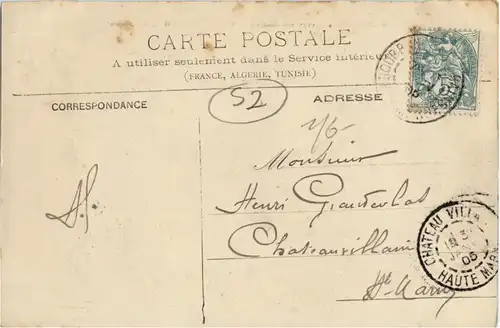 CARTE POSTALE
A utiliser seulement dans le Service intérieur
(FRANCE, ALGERIE, TUNISIE)
52
CORRESPONDANCE
ADRESSE
Monsieur
Henri
Chateauvillain
Hte Marne
CHATEAU VILLAIN
05
HAUTE MARNE